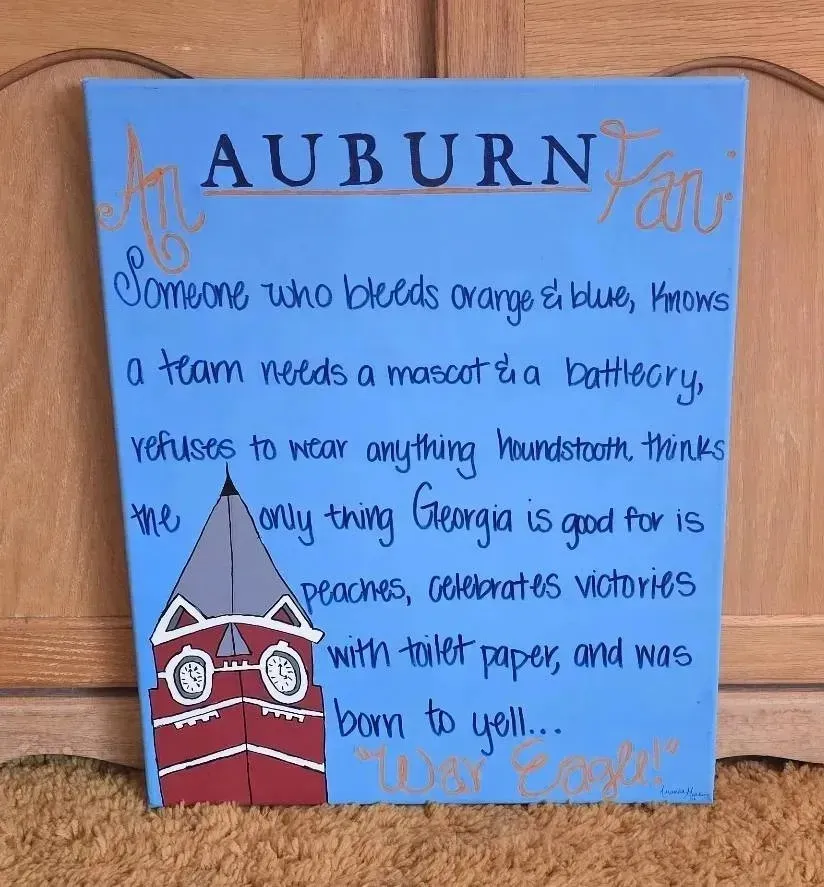 An AUBURN Fan:
Someone who bleeds orange & blue, knows
a team needs a mascot & a battlecry,
refuses to wear anything houndstooth, thinks
the only thing Georgia is good for is
peaches, celebrates victories
with toilet paper, and was
born to yell...
"War Eagle!"